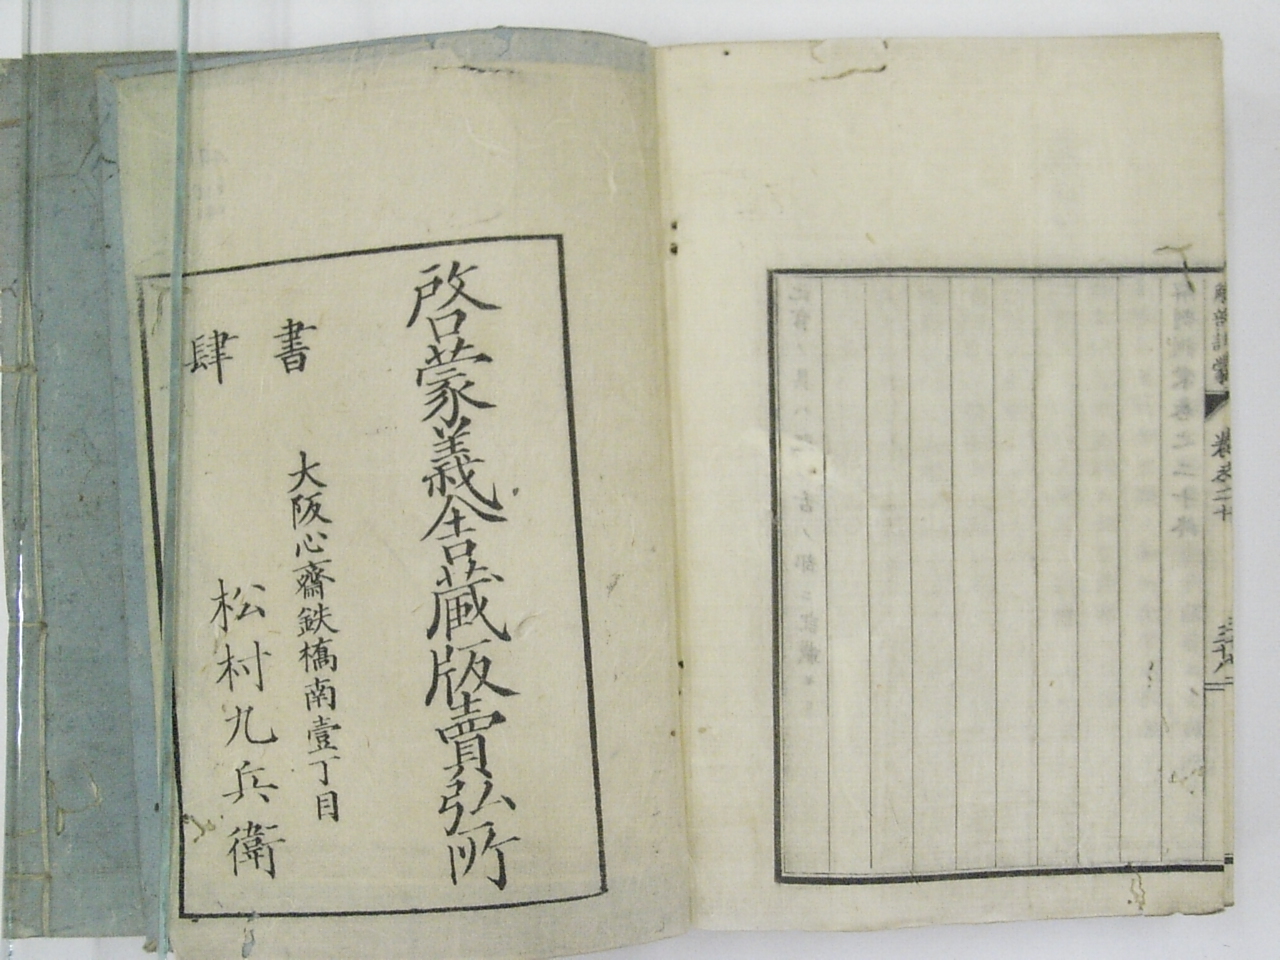 解剖訓蒙
卷之二十
啓蒙義舎蔵版賣弘所
書
肆
大阪心齋鉄橋南壹丁目
松村九兵衛